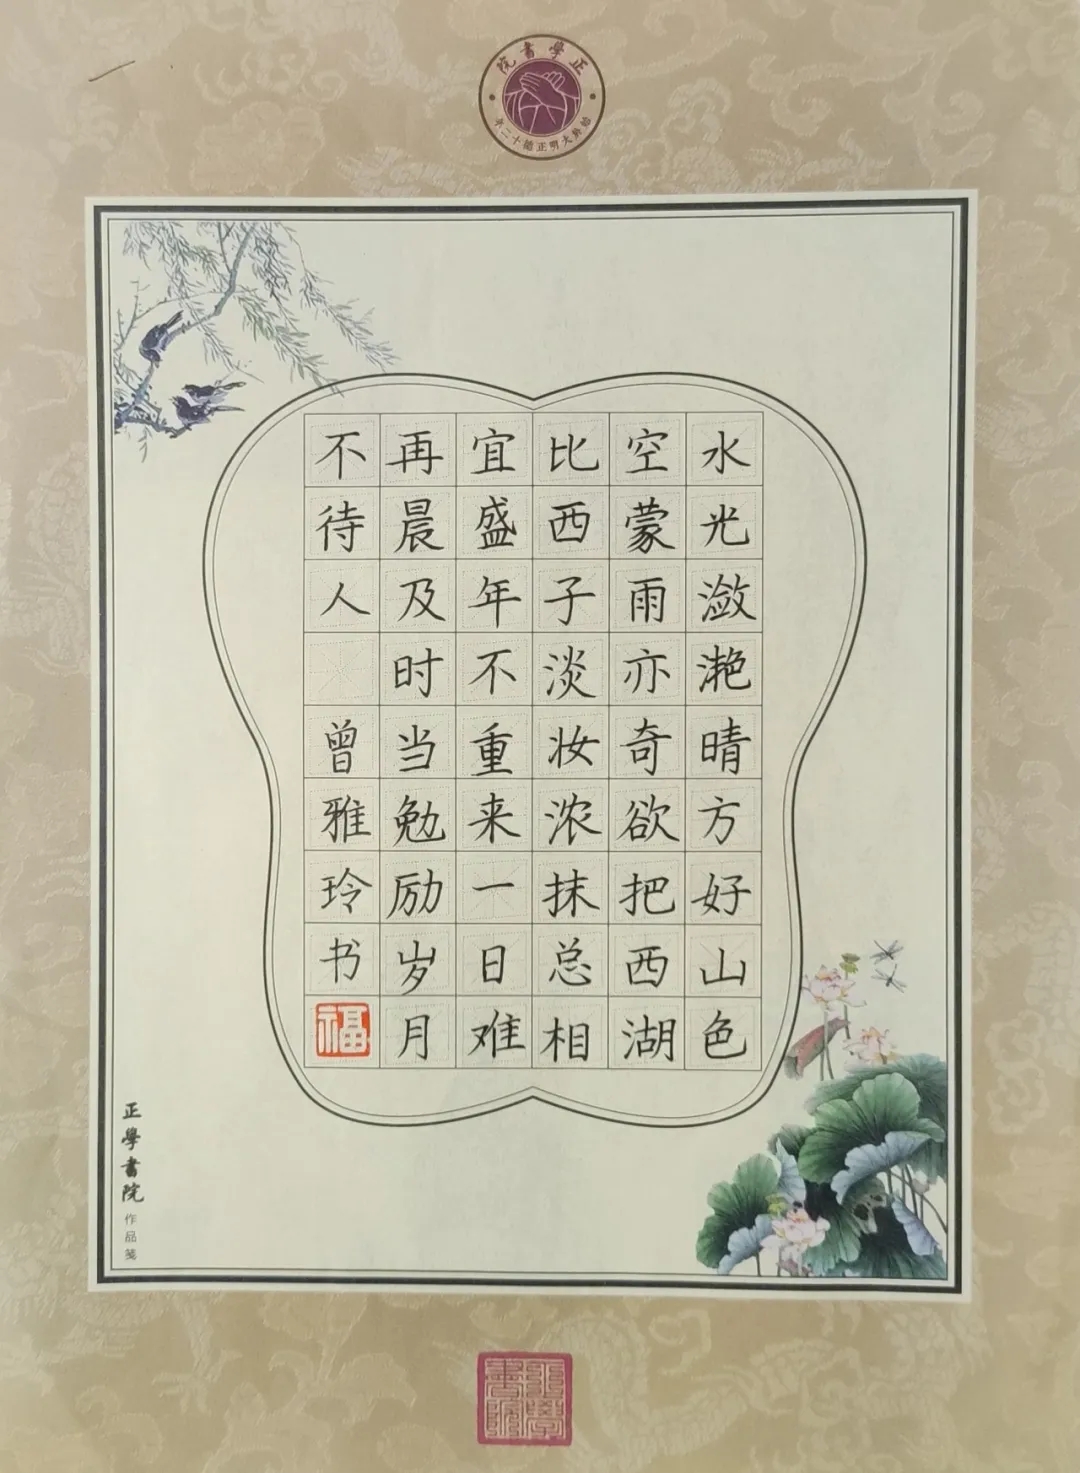 正學書院
水光潋滟晴方好山色
空蒙雨亦奇欲把西湖
比西子淡妆浓抹总相
宜盛年不重来一日难
再晨及时当勉励岁月
不待人 曾雅玲书
福
正學書院
作品笺
正學書院